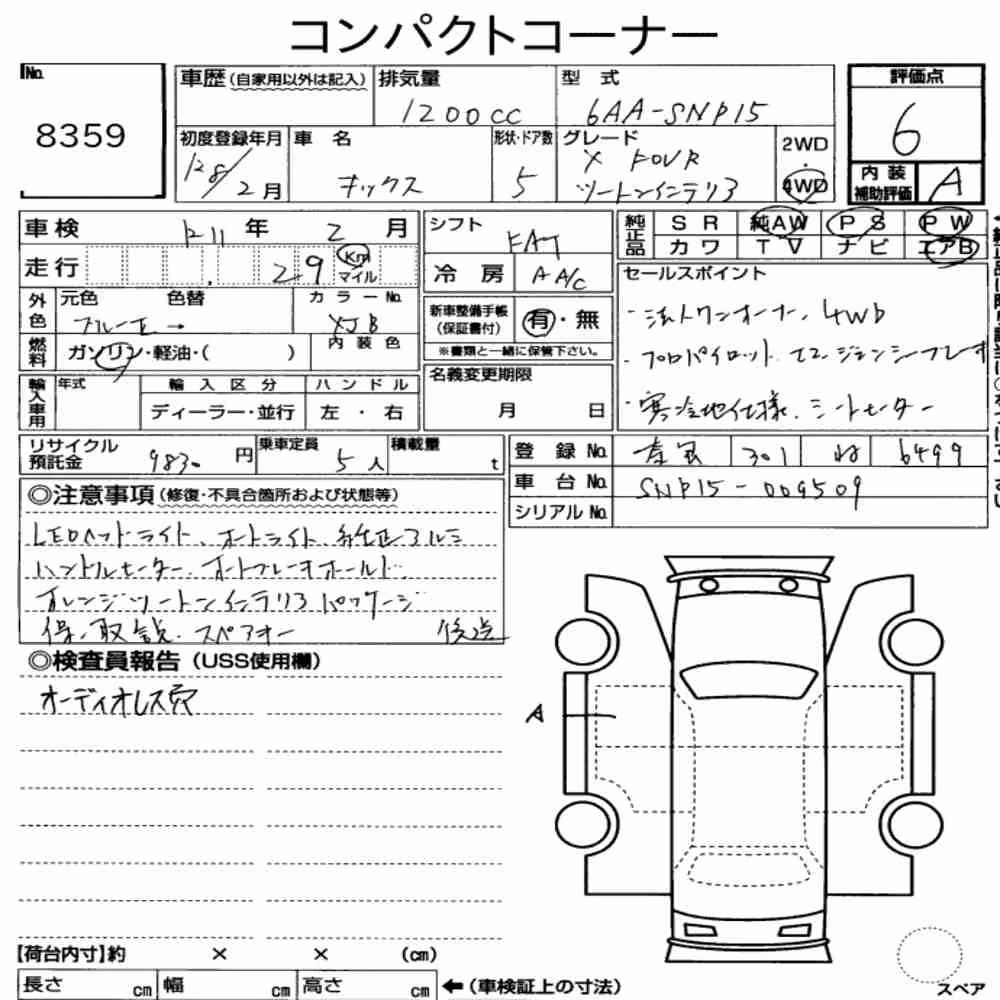 コンパクトコーナー
No.
8359
車歴(自家用以外は記入)
排気量
1200cc
型 式
6AA-SNP15
評価点
6
初度登録年月
2月
車 名
キックス
形状・ドア数
5
グレード
X FOUR
ツートンインテリア
2WD
・
4WD
内 装
補助評価
A
車検
R11 年 2 月
走行
2.9
Km
マイル
外色
元色
色替
ブルー
→
カラーNo.
XJB
燃料
ガソリン・軽油・( )
内 装 色
輸入車用
年式
輸 入 区 分
ディーラー・並行
ハ ン ド ル
左 ・ 右
シフト
FAT
冷 房
A A/C
新車整備手帳
(保証書付)
有・無
※書類と一緒に保管下さい。
名義変更期限
月 日
純正品
S R
純AW
P S
P W
カ ワ
T V
ナ ビ
エアB
セールスポイント
・法人ワンオーナー、4WD
・プロパイロット エマージェンシーブレーキ
・寒冷地仕様、シートヒーター
リサイクル
預託金
9830 円
乗車定員
5 人
積載量
t
登 録 No.
301
6499
車 台 No.
SNP15-009509
シリアル No.
◎注意事項(修復・不具合箇所および状態等)
LEDヘッドライト、オートライト、純正アルミ
ハンドルヒーター、オートブレーキホールド
オレンジツートンインテリアパッケージ
保、取説、スペアキー 後送
◎検査員報告(USS使用欄)
オーディオレス穴
A
【荷台内寸】約 × × (cm)
長さ cm
幅 cm
高さ cm
←(車検証上の寸法)
スペア